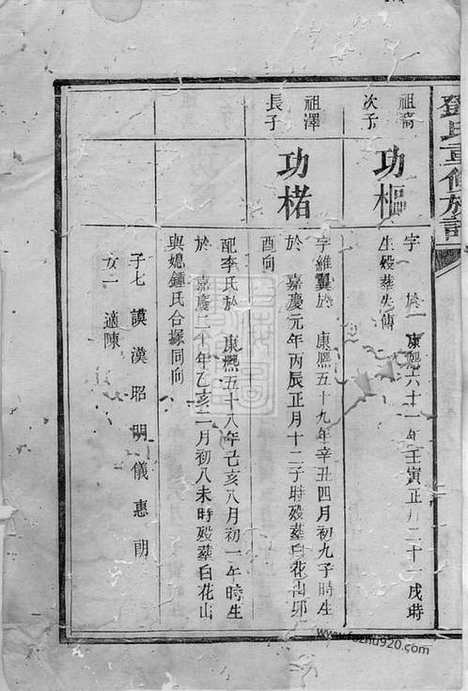 氏重修族譜
祖
次子
功樞
字　於一　康熙六十一年壬寅正月二十一戌時
生歿葬失傳
祖澤
長子
功楮
字維翼於　康熙五十九年辛丑四月初九子時生
於　嘉慶元年丙辰正月十二子時歿葬白花山卯
酉向
配李氏於　康熙五十八年己亥八月初一午時生
於　嘉慶二十年乙亥二月初八未時歿葬白花山
與媳鍾氏合塚同向
子七　謨漢昭明儀惠
女一　適陳
www.fozhu920.com